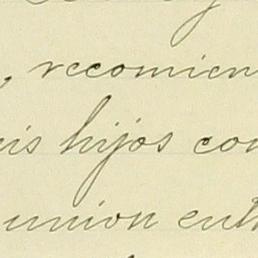 , recomien
is hijos con
union ent